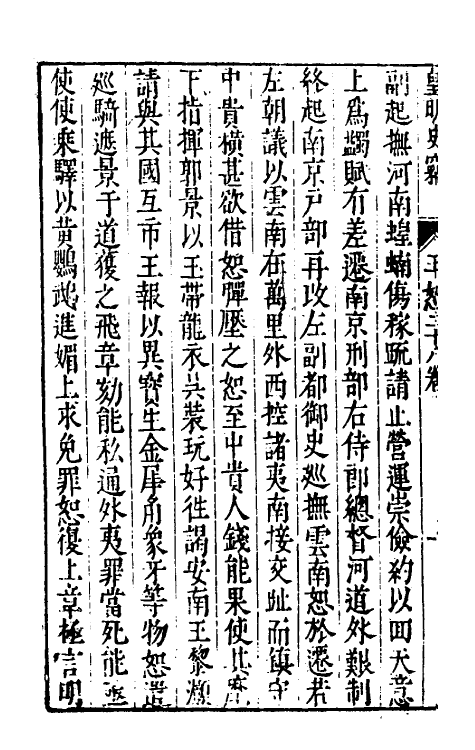 皇明史竊 王恕三十八卷
副起撫河南蝗蝻傷稼疏請止營運崇儉約以回天意
上爲蠲賦有差遷南京刑部右侍郎總督河道外艱制
終起南京戶部再改左副都御史巡撫雲南恕於遷若
左朝議以雲南在萬里外西控諸夷南接交趾而鎮守
中貴橫甚欲借恕彈壓之恕至中貴人錢能果使其麾
下指揮郭景以玉帶龍衣兵裝玩好徃謁安南王黎灝
請與其國互市王報以異寳生金犀角象牙等物恕遣
巡騎遮景于道獲之飛章劾能私通外夷罪當死能亟
使使乘驛以黃鸚鵡進媚上求免罪恕復上章極言明